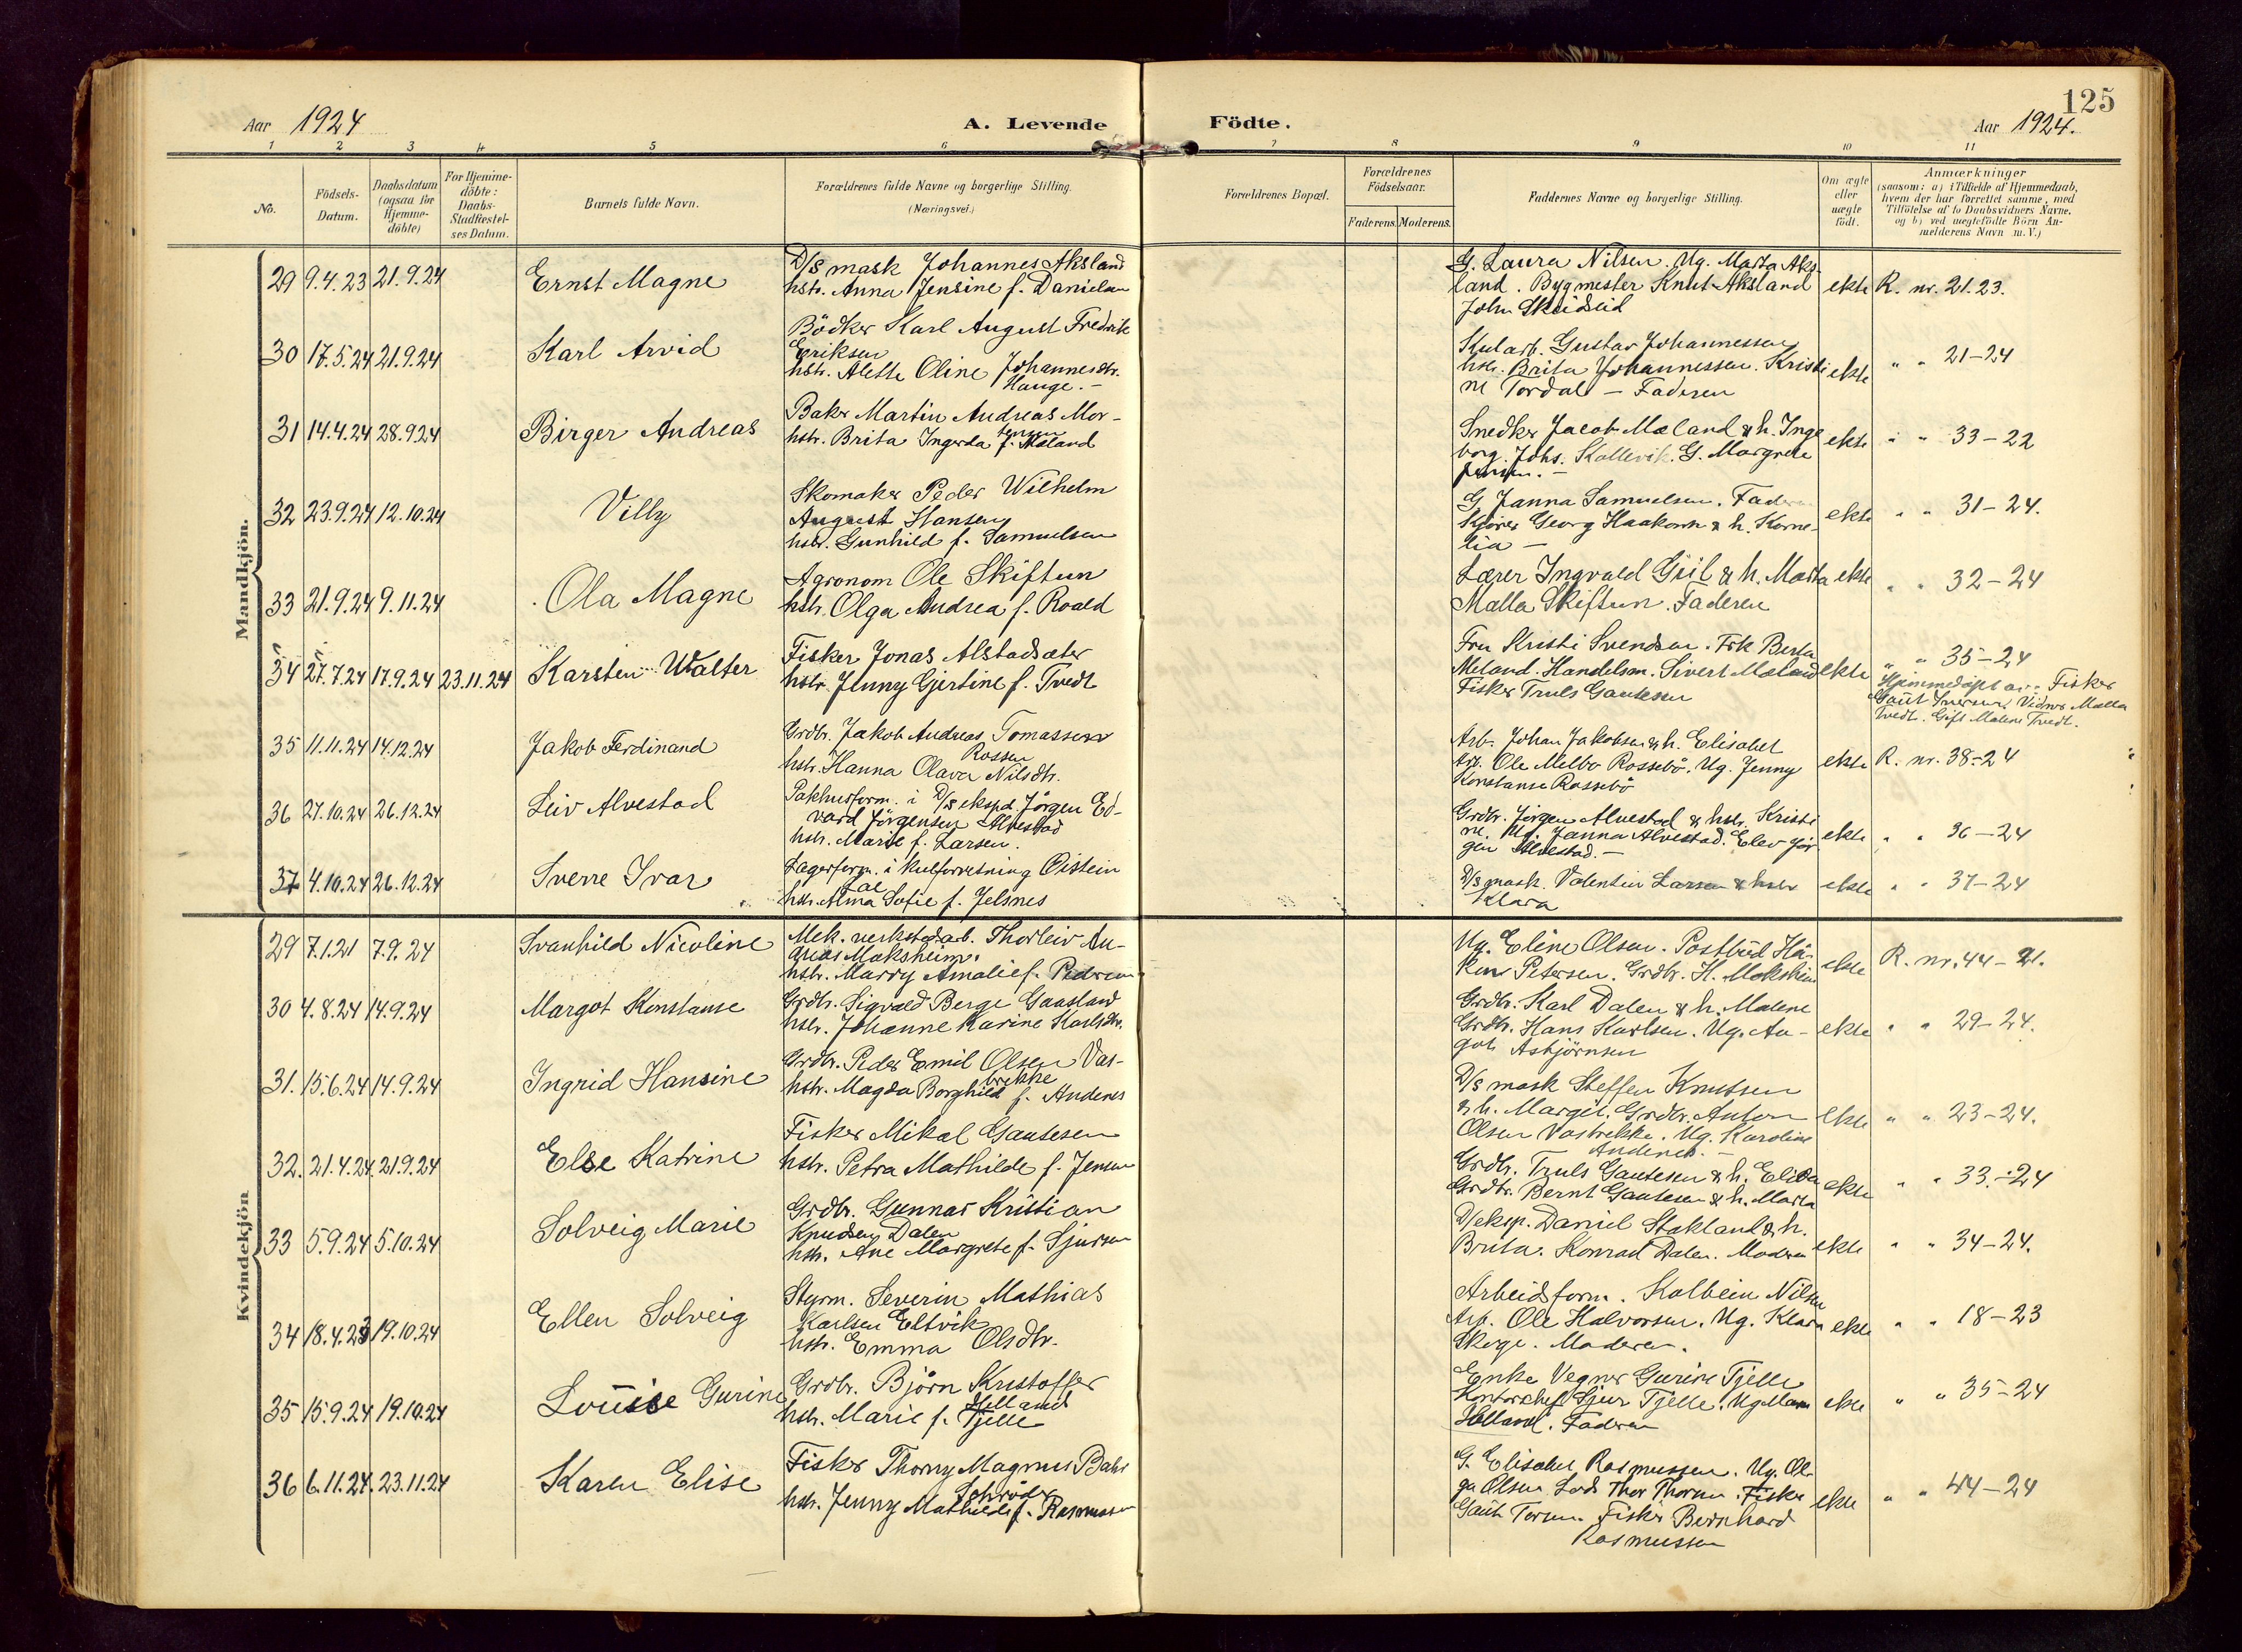 125
Aar 1924
A. Levende Födte.
Aar 1924.
1 2 3 4 5 6 7 8 9 10 11
No.
Födsels-
Datum.
Daabsdatum
(ogsaa for
Hjemme-
döbte)
For Hjemme-
döbte:
Daabs-
Stadfæstel-
ses Datum.
Barnets fulde Navn.
Forældrenes fulde Navne og borgerlige Stilling.
(Næringsvei.)
Forældrenes Bopæl.
Forældrenes
Födselsaar.
Faderens. Moderens.
Faddernes Navne og borgerlige Stilling.
Om ægte
eller
uægte
födt.
Anmærkninger
(saasom: a) i Tilfælde af Hjemmedaab,
hvem der har forrettet samme, med
Tilföielse af to Daabsvidners Navne,
og b) ved uægtefödte Börn An-
melderens Navn m. V.)
Mandkjön.
29 9.4.23 21.9.24 Ernst Magne
D/s mask Johannes Aksland
hstr. Anna Jensine f. Danielsen
G. Laura Nilsen. Ug. Marta Aks-
land. Bygmester Knut Aksland
John Skeidseid
ekte R. nr. 21.23.
30 17.5.24 21.9.24 Karl Arvid
Bödker Karl August Fredrik
Eriksen
hstr. Alette Oline Johannesdtr.
Hauge.-
Kularb. Gustav Johannessen
hstr. Brita Johannessen. Kristi
ne Tordal - Faderen
ekte " " 21-24
31 14.4.24 28.9.24 Birger Andreas
Baker Martin Andreas Mor-
tensen
hstr. Brita Ingerda f. Mæland
Snedker Jacob Mæland & h. Inge
borg. Johs. Kallevik. G. Margrete
Jensen.-
ekte " " 33-22
32 23.9.24 12.10.24 Villy
Skomaker Peder Wilhelm
August Hansen
hstr. Gunhild f. Samuelsen
G. Janna Samuelsen. Faderen
Kjörer Georg Haakonsn & h. Korne-
lia -
ekte " " 31-24.
33 21.9.24 9.11.24 Ola Magne
Agronom Ole Skiftun
hstr. Olga Andrea f. Roald
Lærer Ingvald Giil & h. Marta
Malla Skiftun. Faderen
ekte " " 32-24
34 27.7.24 17.9.24 23.11.24 Karsten Walter
Fisker Jonas Alstadsæter
hstr. Jenny Gjertine f. Tvedt
Fru Kristi Svendsen. Frk Berta
Meland. Handelsm. Sivert Mæland
Fisker Truls Gautesen
ekte " " 35-24
Hjemmedöpt av Fisker
Gaut Iversen, Vidner Malla
Tvedt. Gift Malene Tvedt.
35 11.11.24 14.12.24 Jakob Ferdinand
Grdbr. Jakob Andreas Tomassen
Rossen
hstr. Hanna Olava Nilsdtr.
Arb. Johan Jakobsen & h. Elisabet
Arb. Ole Melbo Rossebö. Ug. Jenny
Konstanse Rossebö
ekte R. nr. 38-24
36 27.10.24 26.12.24 Leiv Alvestad
Pakhusform. i D/s eksped. Jörgen Ed-
vard Jörgensen Alvestad
hstr. Marie f. Larsen.
Grdbr. Jörgen Alvestad & hstr. Kristi
ne. Ug. Janna Alvestad. Elev Jör
gen Alvestad.-
ekte " " 36-24
37 4.10.24 26.12.24 Sverre Ivar
Lagerform. i kulforretning Øistein
hstr. Alma Sofie f. Jelsnes
D/s mask. Valentin Larsen & hstr
Klara
ekte " " 37-24
Kvindekjön
29 7.1.21 7.9.24 Svanhild Nicoline
Mek. verkstedarb. Thorleiv An-
dreas Moksheim.
hstr. Marry Amalie f. Pedersen
Ug. Eline Olsen. Postbud Hå-
kon Petersen. Grdbr. H. Moksheim
ekte R. nr. 44-21.
30 4.8.24 14.9.24 Margot Konstanse
Grdbr. Sigvald Berge Gaasland
hstr. Johanne Karine Karlsdtr.
Grdbr. Karl Dalen & h. Malene
Grdbr. Hans Karlsen. Ug. Au-
got Asbjörnsen
ekte " " 29-24.
31. 15.6.24 14.9.24 Ingrid Hansine
Grdbr. Peder Emil Olsen Vas-
brekke
hstr. Magda Borghild f. Andenes
D/s mask Steffen Knutsen
& h. Margit. Grdbr. Anton
Olsen Vasbrekke. Ug. Karoline
Andenes.-
ekte " " 23-24.
32. 21.4.24. 21.9.24 Else Katrine
Fisker Mikal Gautesen
hstr. Petra Mathilde f. Jensen
Grdbr. Truls Gautesen & h. Elida
Grdbr. Bernt Gautesen & h. Marta
ekte " " 33.-24
33 5.9.24 5.10.24 Solveig Marie
Grdbr. Gunnar Kristian
Knudsen Dalen
hstr. Ane Margrete f. Sjursen
D/eksp. Daniel Stakland & h.
Brita. Konrad Dalen. Moderen
ekte " " 34-24.
34 18.4.23 19.10.24 Ellen Solveig
Styrm. Severin Mathias
Karlsen Eltvik
hstr. Emma Olsdtr.
Arbeidsform. Kolbein Nilsen
Arb. Ole Halvorsen. Ug. Klara
Skoge. Moderen.
ekte " " 18-23
35 15.9.24 19.10.24 Louise Gurine
Grdbr. Björn Kristoffer
Helland
hstr. Marie f. Tjelle
Enke Vegner Gurine Tjelle
Kontorchef Sjur Tjelle. Ug.
Helland. Faderen
ekte " " 35-24
36 6.11.24. 23.11.24 Karen Elise
Fisker Thorny Magnus Bahr
Schröder
hstr. Jenny Mathilde f. Rasmussen
G. Elisabet Rasmussen. Ug. Ol-
ga Olsen. Lods Thor Thorsen. Fisker
Gaute Torsen. Fisker Bernhard
Rasmussen
ekte " " 44-24